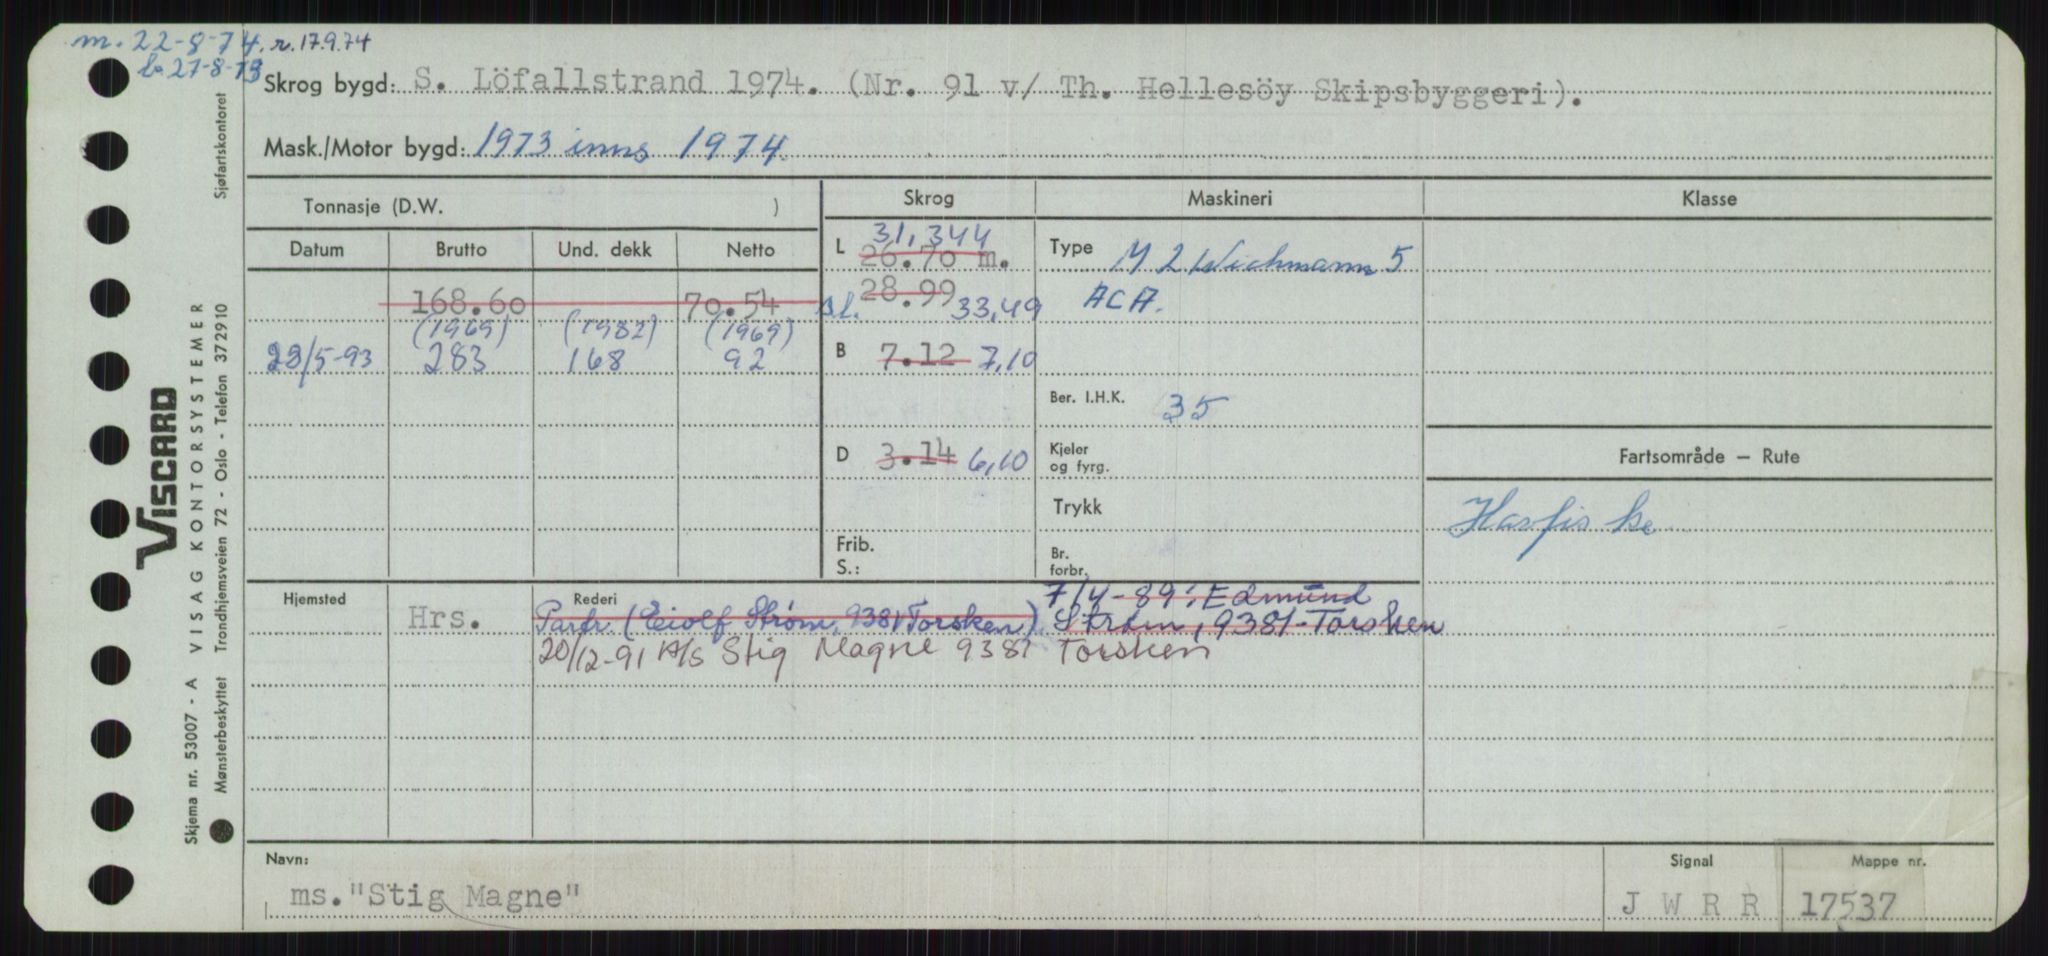 m. 22-8-74. r. 17.9.74
b. 27-8-73
Skrog bygd: S. Löfallstrand 1974. (Nr. 91 v/ Th. Hellesöy Skipsbyggeri).
Mask./Motor bygd: 1973 inns 1974.
Tonnasje (D.W. ) Skrog Maskineri Klasse
Datum Brutto Und. dekk Netto
L 31,344
26.70 m.
Type M 2 Wichmann 5
ACA.
168.60 70.54 Bl. 28.99 33,49
(1969) (1982) (1969)
23/5-93 283 168 92
B 7.12 7,10
Ber. I.H.K. 35
D 3.14 6,10
Kjeler
og fyrg.
Fartsområde – Rute
Trykk
Havfiske
Frib.
S.:
Br.
forbr.
Hjemsted Hrs.
Rederi
7/4-89: Edmund
Partr. (Eiolf Strøm, 9381 Torsken). Strøm, 9381-Torsken
20/12-91 A/S Stig Magne 9381 Torsken
Navn: Signal Mappe nr.
ms. "Stig Magne" J W R R 17537
VISCARD
Skjema nr. 53007 - A VISAG KONTORSYSTEMER
Mønsterbeskyttet Trondhjemsveien 72 - Oslo - Telefon 372910 Sjøfartskontoret